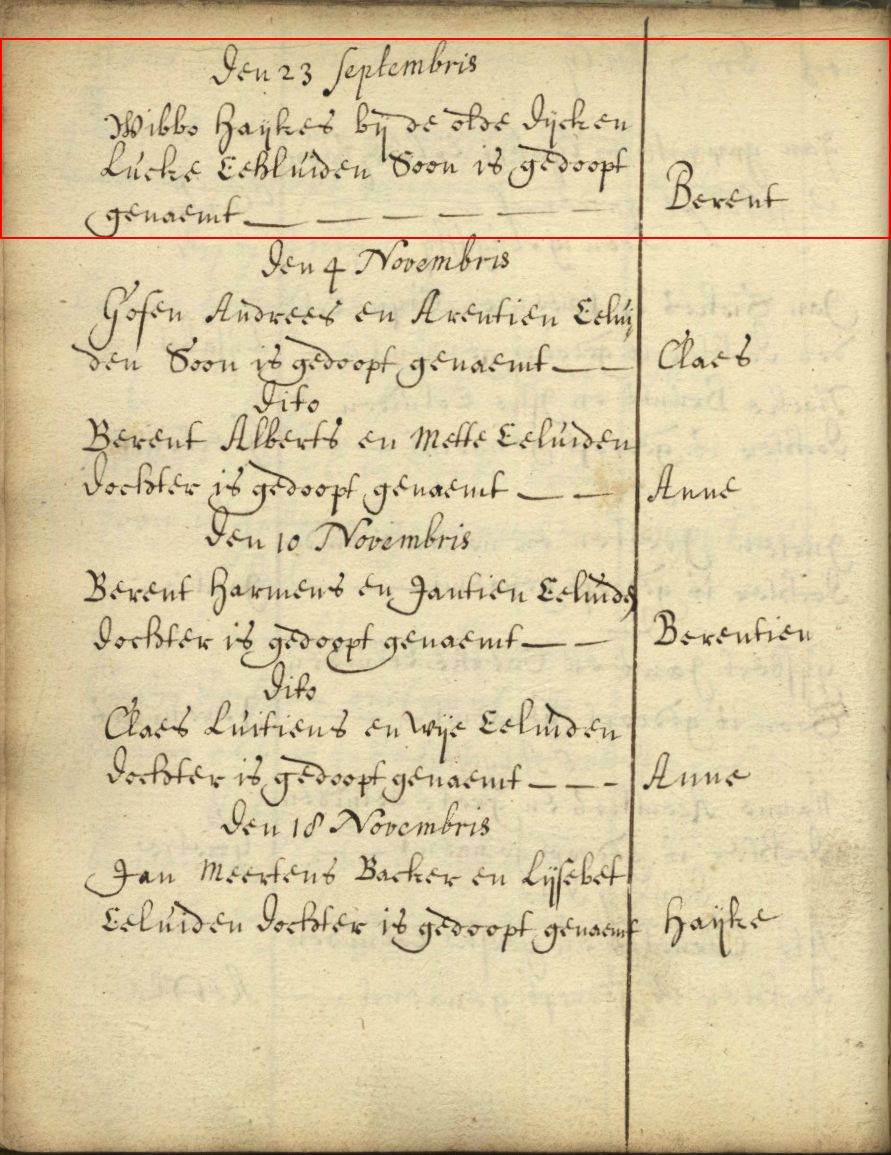 Den 23 Septembris
Wibbo Haÿkes bÿ de olde Dÿcken
Lucke Eehluiden Soon is gedoopt
genaemt — — — — — — Berent
Den 4 Novembris
Gosen Andrees en Arentien Eelui
den Soon is gedoopt genaemt — — Claes
Dito
Berent Alberts en Mette Eeluiden
dochter is gedoopt genaemt — — Anne
Den 10 Novembris
Berent Harmens en Jantien Eeluiden
dochter is gedoopt genaemt — — Berentien
Dito
Claes Luitiens en wÿe Eeluiden
dochter is gedoopt genaemt — — - Anne
Den 18 Novembris
Jan Meertens Backer en Lÿsebet
Eeluiden dochter is gedoopt genaemt Haÿke